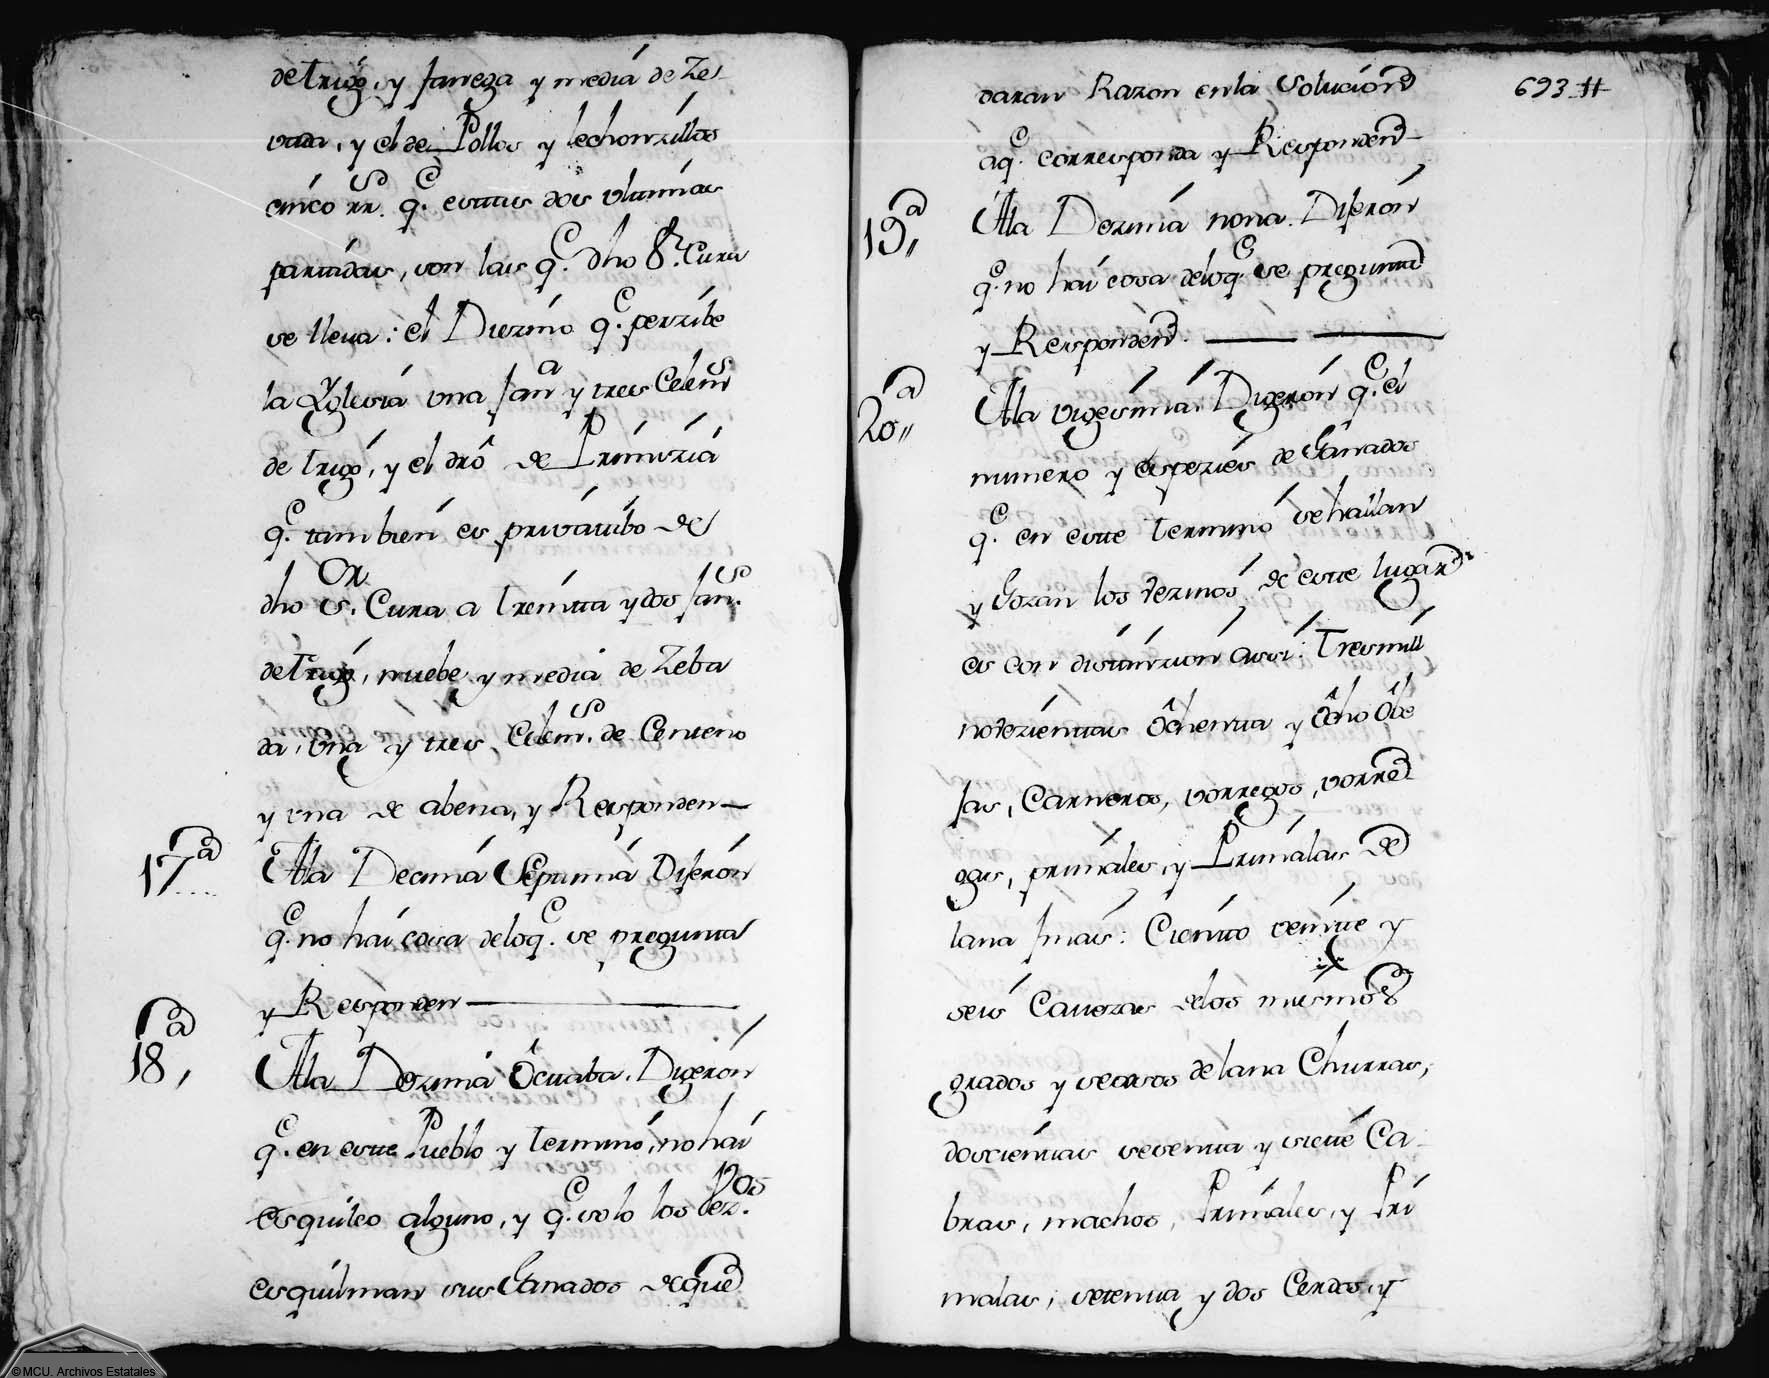 de trigo, y fanega y media de Ze-
vada, y el de Pollos y lechonzillos
cinco rr.s q.e estas dos vltimas
partidas, son las q.e dho S.r Cura
se lleua: el Diezmo q.e perzibe
la Yglesia vna fan.a y tres Celem.s
de trigo, y el dro de Primizia
q.e tambien es pribatibo de
dho S.or Cura a treinta y dos fan.s
de trigo, nuebe y media de Zeba
da, vna y tres Celem.s de Centeno
y vna de abena, y Responden
17ª
Ala Decima Septima Dijeron
q.e no hai cosa delo q.e se pregunta
y Responden
18ª,
Ala Dezima Octaba, Digeron
q.e en este Pueblo y termino, no hai
esquileo alguno, y q.e solo los Vez.nos
esquilman sus Ganados de que
693
daran Razon en la Solucion
aq.e corresponda y Responden
19ª,,
Ala Dezima nona. Dijeron
q.e no hai cosa delo q.e se pregunta
y Responden.
20ª,,
Ala vigesima, Digeron q.e el
numero y espezies de Ganados
q.e en este termino se hallan
y Gozan los vezinos de este lugar
es con distinzion assi: Tres mill
novezientas Ôchenta y Ôcho Obe
jas, Carneros, vorregos, vorre
gas, primales, y Primalas de
lana finas: Ciento veinte y
seis Cauezas de los mismos
grados y sexsos de lana Churras,
doscientas sesenta y siete Ca-
bras, machos, Primales, y Pri
malas, setenta y dos Cerdos, y
©MCU. Archivos Estatales